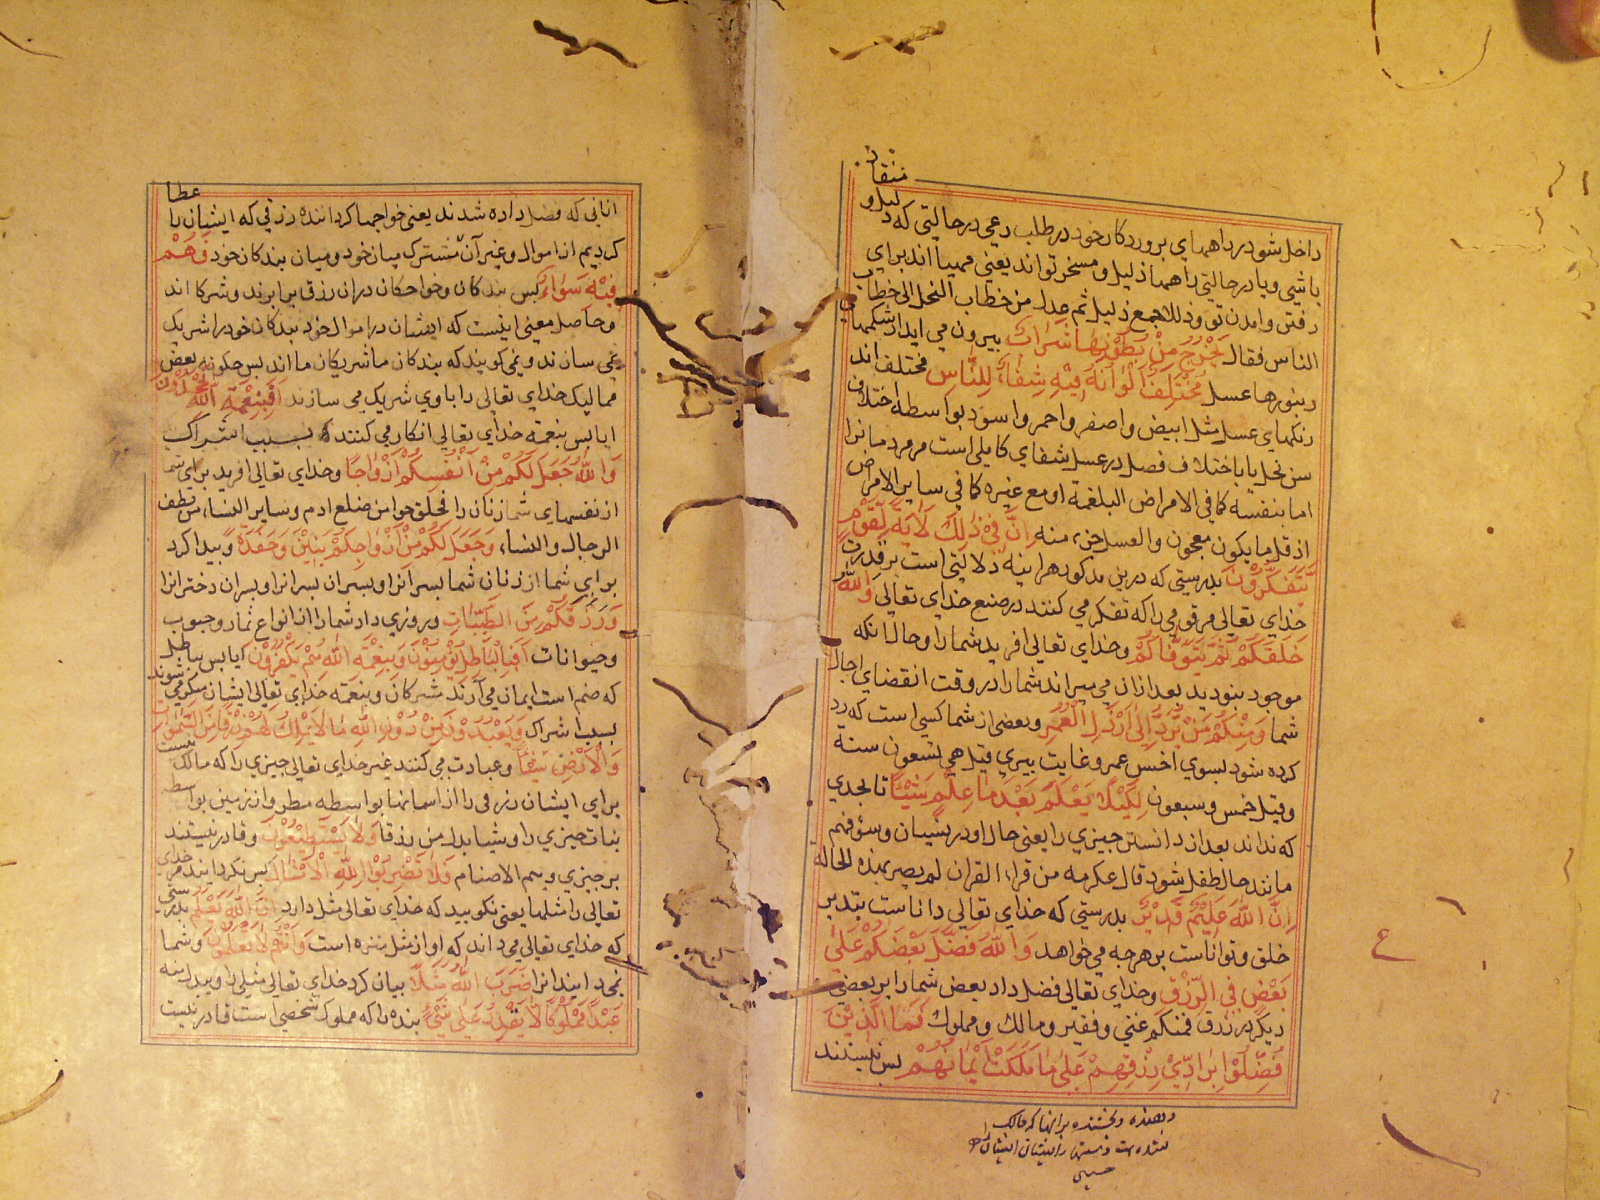 منقاد
ذليل و
داخل شود در راههاي پروردكار خود در طلب رعي در حالتي كه
باشي و يا در حالتي راهها ذليل و مسخر تواند يعني مهيا اند براي
رفتن و امدن تو وذللا جمع ذليل ثم عدل من خطاب النحل الى خطاب
الناس فقال يَخْرُجُ مِنْ بُطُوْنِهَا شَرَابٌ بيرون مي ايد از شكمهاي
زنبورها عسل مُخْتَلِفٌ اَلْوَانُهٗ فِيْهِ شِفَاۤءٌ لِلنَّاسِ مختلف اند
رنكهاي عسل مثل ابيض و اصفر و احمر و اسود بواسطه اختلاف
سن نحل يا باختلاف فصل در عسل شفاي كاملي است مر مردمانرا
اما بنفسه كما في الامراض البلغمية او مع غيره كما في ساير الامراض
از قل ما يكون معجون والعسل جزء منه اِنَّ فِيْ ذٰلِكَ لَاٰيَةً لِّقَوْمٍ
يَّتَفَكَّرُوْنَ بدرستي كه درين مذكور هراينه دلالتي است بر قدرت
خداي تعالى مر قومي را كه تفكر مي كنند در صنع خداي تعالى وَاللّٰهُ
خَلَقَكُمْ ثُمَّ يَتَوَفّٰاكُمْ و خداي تعالى افريد شما را و حال انكه
موجود نبوديد بعد ازان مي ميراند شما را در وقت انقضاي اجال
شما وَمِنْكُمْ مَنْ يُّرَدُّ اِلٰى اَرْذَلِ الْعُمُرِ و بعضي از شما كسي است كه رد
كرده شود بسوي اخس عمر و غايت پيري قيل هي تسعون سنة
و قيل خمس و سبعون لِكَيْلَا يَعْلَمَ بَعْدَ مَا عِلْمٍ شَيْئًا تا بحدي
كه نداند بعد از دانستن چيزي را يعني حال او در نسيان و سؤفهم
مانند حال طفل شود قال عكرمه من قراء القران لم يصر بهذه الحالة
اِنَّ اللّٰهَ عَلِيْمٌ قَدِيْرٌ بدرستي كه خداي تعالى داناست بتدبير
خلق و تواناست بر هرچه مي خواهد وَاللّٰهُ فَضَّلَ بَعْضَكُمْ عَلٰى
بَعْضٍ فِي الرِّزْقِ و خداي تعالى فضل داد بعض شما را بر بعضي
ديكر در رزق فمنكم غني و فقير و مالك و مملوك فَمَا الَّذِيْنَ
فُضِّلُوْا بِرَادِّيْ رِزْقِهِمْ عَلٰى مَا مَلَكَتْ اَيْمَانُهُمْ پس نيستند
دهنده و بخشنده بر انها كه مالك
عطا
اناني كه فضل داده شدند يعني خواجها كرداننده رزقي كه ايشان را
كرديم از اموال و غير آن مشترك ميان خود و ميان بندكان خود فَهُمْ
فِيْهِ سَوَاۤءٌ پس بندكان و خواجكان دران رزق برابرند و شركا اند
و حاصل معني اينست كه ايشان در اموال خود بندكان خود را شريك
نمي سازند و نمي كويند كه بندكان ما شريكان ما اند پس چكونه بعض
مماليك خداي تعالى را با وي شريك مي سازند اَفَبِنِعْمَةِ اللّٰهِ يَجْحَدُوْنَ
ايا پس بنعمة خداي تعالى انكار مي كنند كه بسبب اشراك
وَاللّٰهُ جَعَلَ لَكُمْ مِنْ اَنْفُسِكُمْ اَزْوَاجًا و خداي تعالى افريد براي شما
از نفسهاي شما زنان را فخلق حوا من ضلع ادم و ساير النساء من نطف
الرجال والنساء وَجَعَلَ لَكُمْ مِنْ اَزْوَاجِكُمْ بَنِيْنَ وَحَفَدَةً و پيدا كرد
براي شما از زنان شما پسرانرا و پسران پسرانرا و پسران دخترانرا
وَرَزَقَكُمْ مِنَ الطَّيِّبٰاتِ و روزي داد شما را از انواع ثمار و حبوب
و حيوانات اَفَبِالْبَاطِلِ يُؤْمِنُوْنَ وَبِنِعْمَةِ اللّٰهِ هُمْ يَكْفُرُوْنَ ايا پس بباطل
كه صنم است ايمان مي آرند مشركان و بنعمة خداي تعالى ايشان منكر مي شوند
بسبب اشراك وَيَعْبُدُوْنَ مِنْ دُوْنِ اللّٰهِ مَا لَا يَمْلِكُ لَهُمْ رِزْقًا مِنَ السَّمٰوَاتِ
وَالْاَرْضِ شَيْئًا و عبادت مي كنند غير خداي تعالى چيزي را كه مالك نيست
براي ايشان رزقي را از اسمانها بواسطه مطر و از زمين بواسطه
نبات چيزي را و شيئا بدل من رزقا وَلَا يَسْتَطِيْعُوْنَ و قادر نيستند
بر چيزي و هم الاصنام فَلَا تَضْرِبُوْا لِلّٰهِ الْاَمْثَالَ پس نكردانيد مر خداي
تعالى را مثلها يعني نكوييد كه خداي تعالى مثل دارد اِنَّ اللّٰهَ يَعْلَمُ بدرستي
كه خداي تعالى مي داند كه او از مثل منزه است وَاَنْتُمْ لَا تَعْلَمُوْنَ و شما
نمي دانيد انرا ضَرَبَ اللّٰهُ مَثَلًا بيان كرد خداي تعالى مثلي را و بدل منه
عَبْدًا مَمْلُوْكًا لَا يَقْدِرُ عَلٰى شَيْءٍ بنده را كه مملوك شخصي است قادر نيست